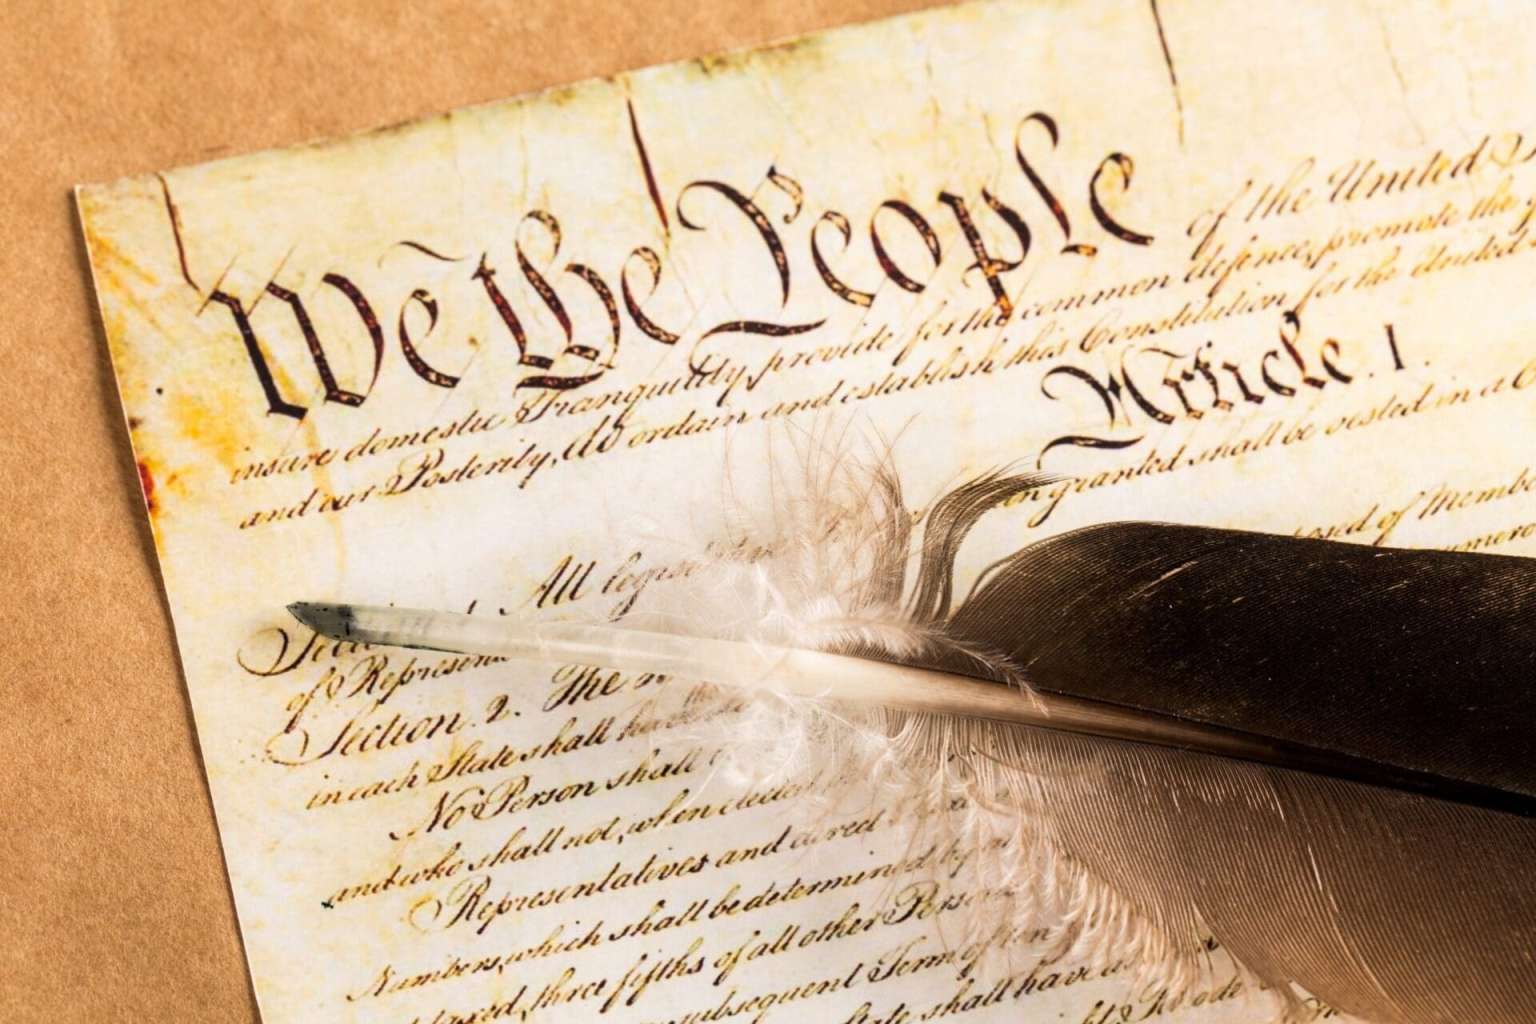 We the People of the United
insure domestic Tranquility, provide for the common defence, promote the
and our Posterity, do ordain and establish this Constitution for the United
Article. I.
All granted shall be vested in a
of Represent
Section. 2. The
in each State shall
No Person shall
and who shall not, when elected
Representatives and direct
Numbers, which shall be determined by
three fifths of all other Persons
subsequent Term of ten
State shall have